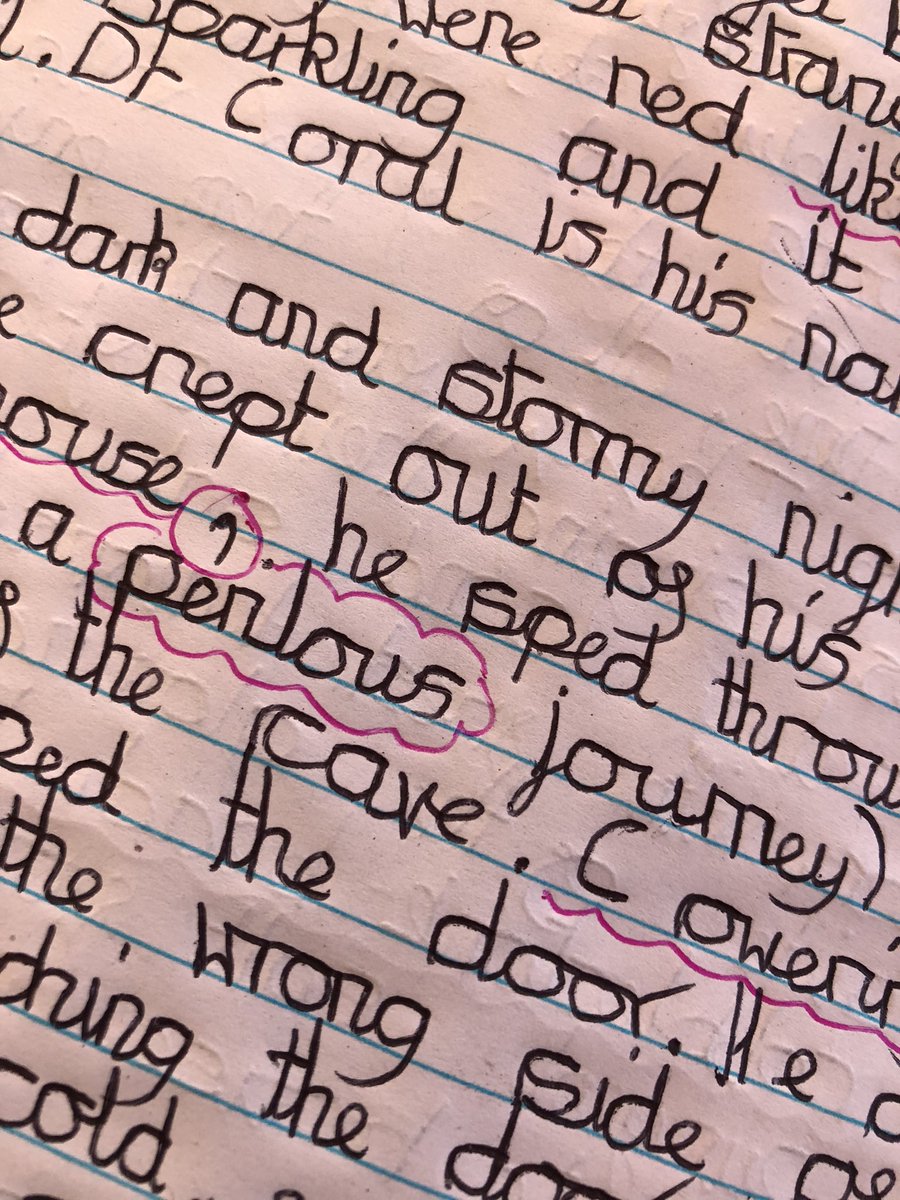 stran
were red like
Sparkling and it
Dr Coral is his na
dark and stormy nigh
e crept out of his
ouse, he sped throu
a Perilous journey)
the cave. Coweri
zed the door. He
the wrong side of
ching the do
cold